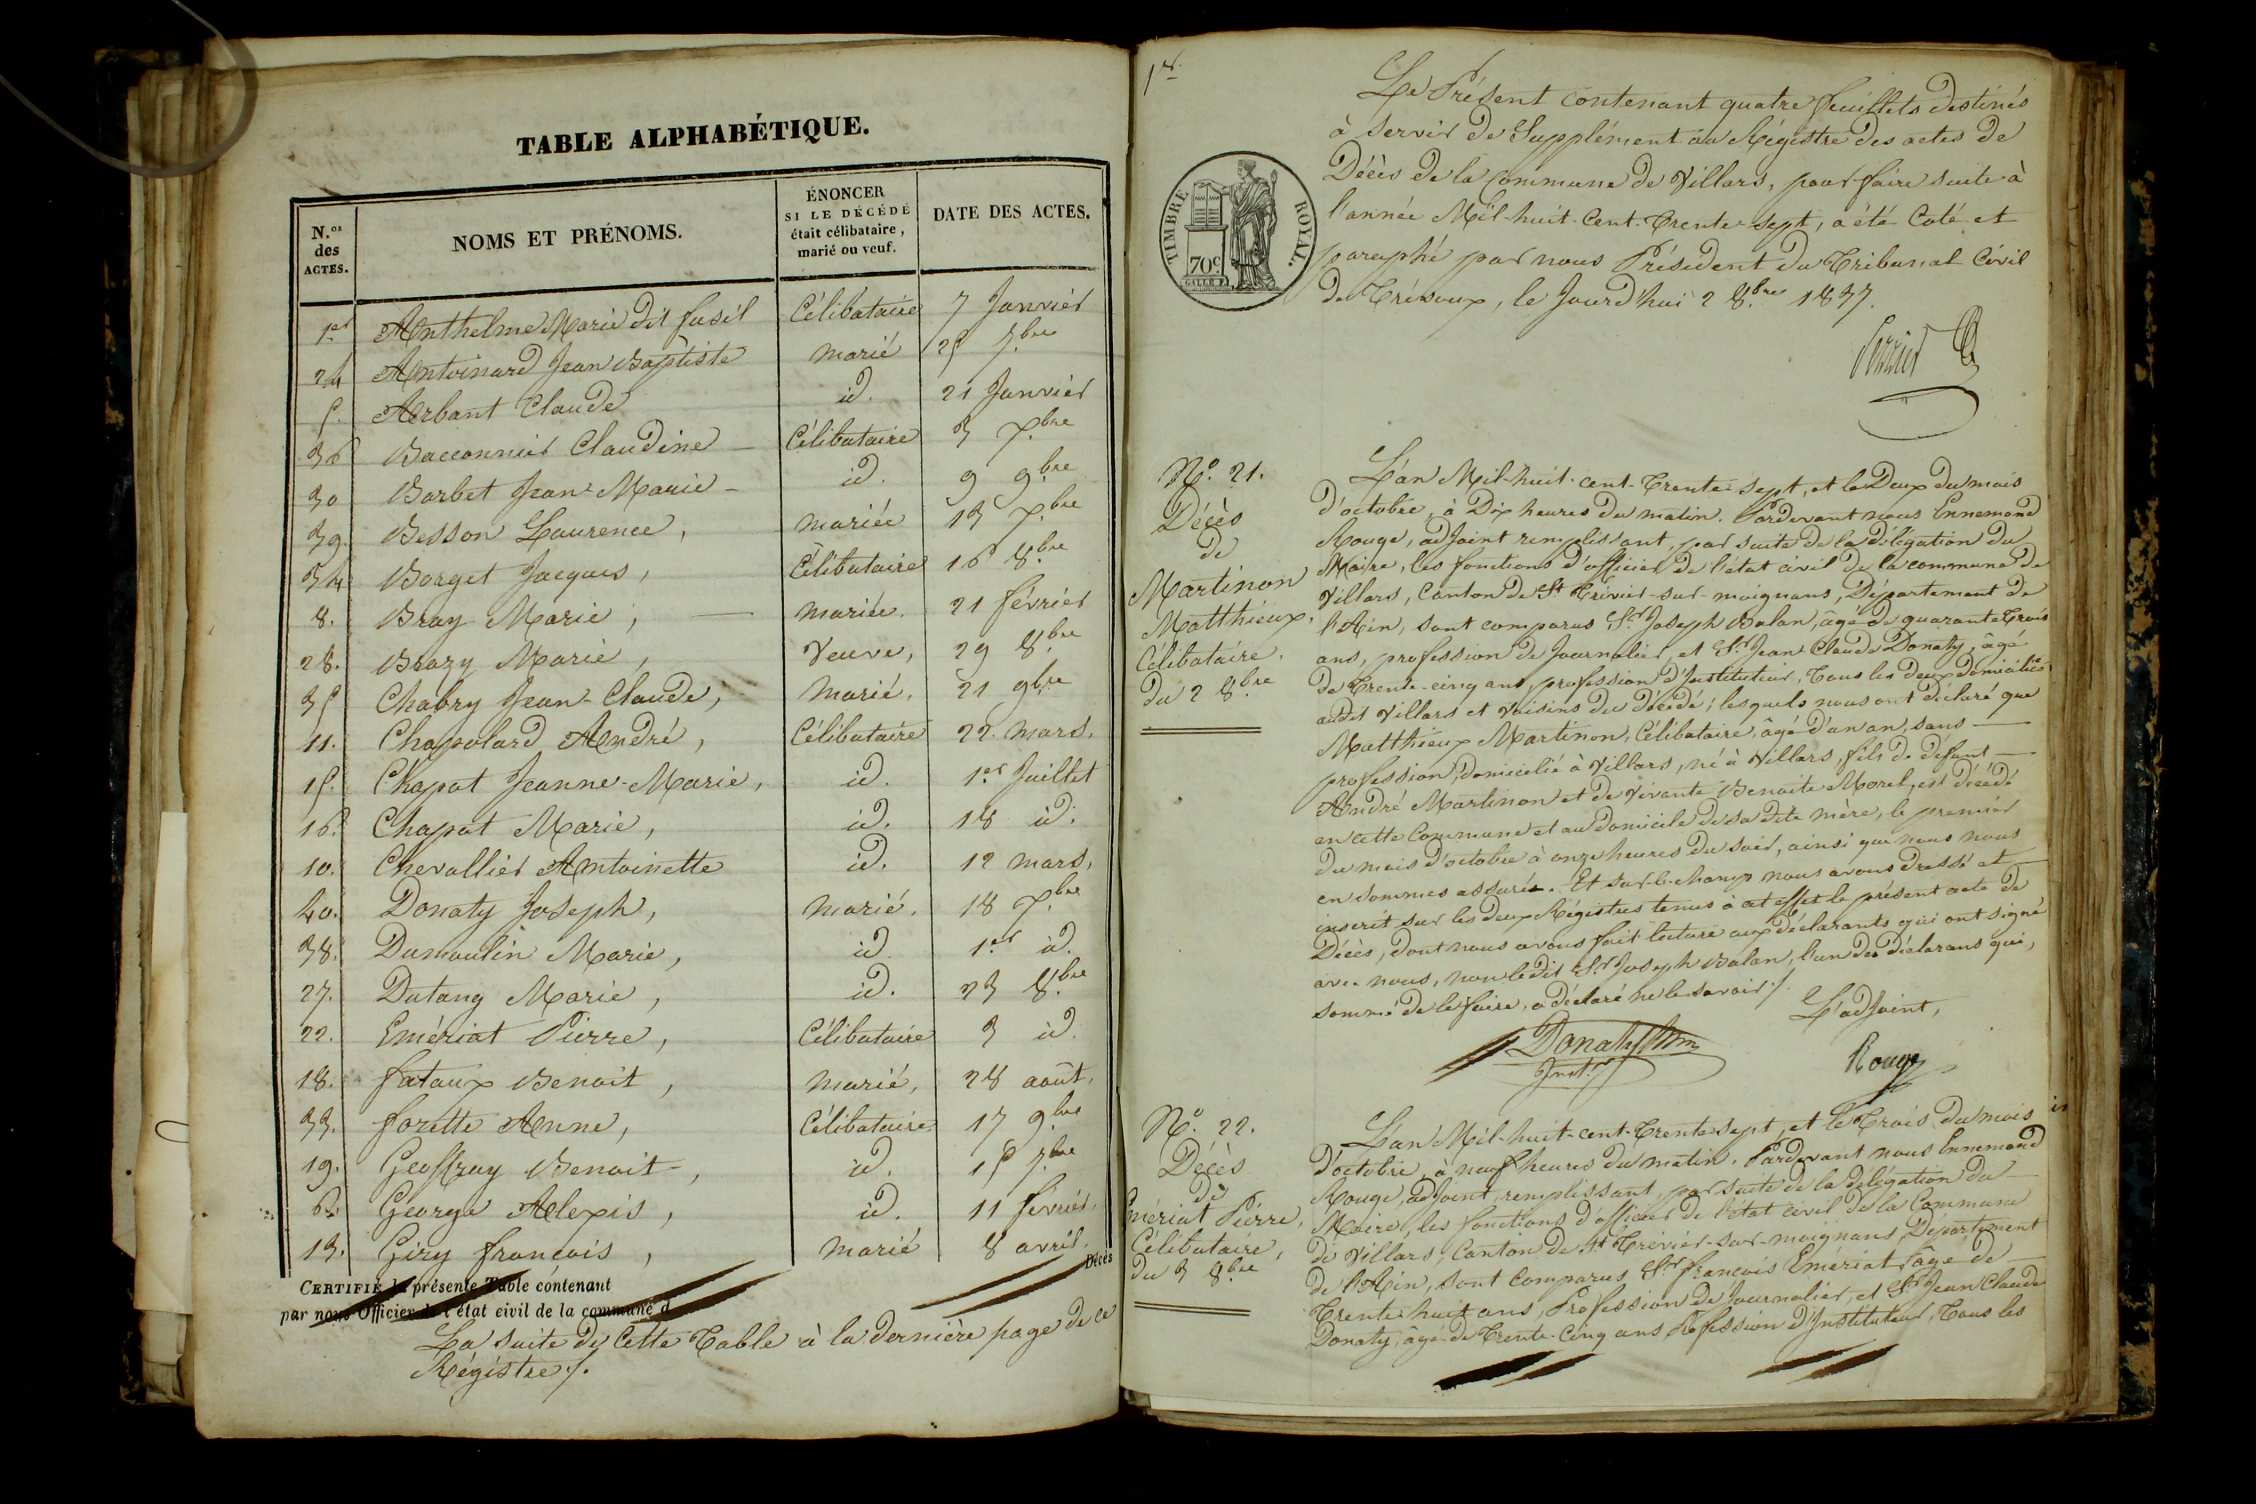 TABLE ALPHABÉTIQUE.
N.os des ACTES.
NOMS ET PRÉNOMS.
ÉNONCER
SI LE DÉCÉDÉ
était célibataire,
marié ou veuf.
DATE DES ACTES.
1er Anthelme Marie dit fusil Célibataire 7 Janvier
24 Antoinard Jean Baptiste marié 25 7.bre
5. Arbant Claude id. 21 Janvier
36 Bacconnier Claudine Célibataire 3 Xbre
30 Barbet Jean-Marie id. 9 9.bre
39. Besson Laurence, mariée 13 Xbre
54 Borget Jacques, Célibataire 16 8.bre
8. Bray Marie, mariée. 21 février
28. Brazy Marie, Veuve, 29 8.bre
35 Chabry Jean-Claude, Marié. 21 9bre
11. Chapolard André, Célibataire 22 mars.
15. Chapat Jeanne-Marie, id. 1.er Juillet
16. Chapat Marie, id. 18 id.
10. Chevallier Antoinette id. 12 mars,
40. Donaty Joseph, marié. 18 Xbre
38. Dumoulin Marie, id 1.er id.
27. Dutang Marie, id. 23 8.bre
22. Emériat Pierre, Célibataire 3 id.
18. fataux Benoit, marié, 28 août,
33. forette Anne, Célibataire 17 9.bre
19. Geoffray Benoit, id. 15 7.bre
6. George Alexis, id. 11 février,
13. Giry francois, marié 8 avril.
Décès
CERTIFIÉ la présente Table contenant
par nous Officier de l'état civil de la commune d
La suite de Cette Table à la dernière page de ce
Régistre /.
1er
Le Présent contenant quatre feuillets destinés
à servir de Supplément au Régistre des actes de
Décès de la Commune de Villars, pour faire suite à
l'année Mil-huit-Cent-Trente-sept, a été Coté et
paraphé par nous Président du Tribunal Civil
de Trévoux, le Jourd'hui 2 8.bre 1837.
TIMBRE ROYAL.
70c
Perrier
N.o 21.
Décès
de
Martinon
Matthieux.
Célibataire.
du 2 8.bre
L'an Mil-huit-cent-Trente-sept, et le Deux du mois
d'octobre, à Dix heures du matin. Pardevant nous Ennemond
Rouge, adjoint remplissant, par suite de la délégation du
Maire, les fonctions d'officier de l'état civil de la commune de
Villars, Canton de St Trivier-sur-moignans, Département de
l'Ain, sont comparus Sr Joseph Balan, âgé de quarante Trois
ans, profession de Journalier, et Sr Jean Claude Donaty, âgé
de Trente-cinq ans, profession d'Instituteur, Tous les Deux domiciliés
audit Villars et Voisins du décédé; lesquels nous ont déclaré que
Matthieux Martinon, Célibataire, âgé d'un an, sans
profession, domicilié à Villars, né à Villars, fils de defunt
André Martinon et de Vivante Benoite Morel, est décédé
en cette Commune et au domicile de sa dite mère, le premier
du mois d'octobre à onze heures du soir, ainsi que nous nous
en sommes assuré. Et sur-le-champ nous avons dressé et
inscrit sur les deux Régistres tenus à cet effet le présent acte de
Décès, dont nous avons fait lecture aux déclarants qui ont signé
avec nous, non ledit Sr Joseph Balan, l'un des déclarans qui,
sommé de le faire, a déclaré ne le savoir /.
L'adjoint,
Donaty
Inst.r
Rouge
N.o 22.
Décès
de
Emériat Pierre,
Célibataire,
du 3 8.bre
L'an Mil-huit-cent-Trente-sept, et le Trois du mois
d'octobre, à neuf heures du matin. Pardevant nous Ennemond
Rouge, adjoint, remplissant, par suite de la délégation du
Maire, les fonctions d'officier de l'état civil de la Commune
de Villars, Canton de St Trivier-sur-moignans, Département
de l'Ain, sont comparus Sr francois Emériat âgé de
Trente huit ans, Profession de Journalier, et Sr Jean Claude
Donaty, âgé de Trente-Cinq ans Profession d'Instituteur, Tous les